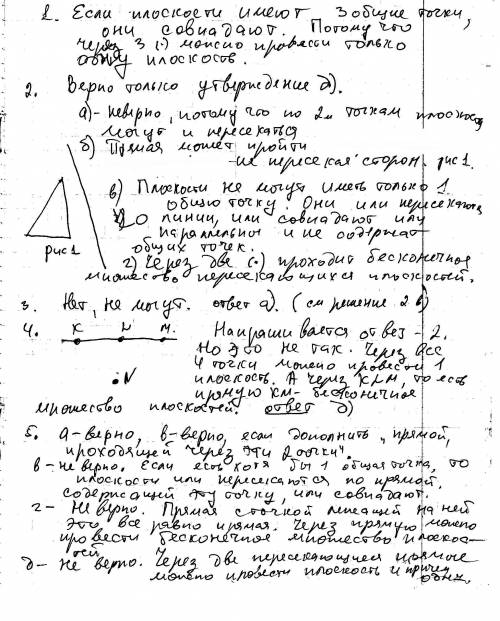 1. Если плоскости имеют 3 общие точки,
они совпадают. Потому что
через 3 (·) можно провести только
одну плоскость.
2. Верно только утверждение д).
а) - неверно, потому что по 2м точкам плоскости
могут и пересекаться
б) Прямая может пройти
не пересекая сторон. рис 1.
в) Плоскости не могут иметь только 1
общую точку. Они или пересекаются
по линии, или совпадают или
параллельны и не содержат
общих точек.
рис 1
г) Через две (·) проходит бесконечное
множество пересекающихся плоскостей.
3. Нет, не могут. ответ а). (см решение 2 в)
4. К L М.
Напрашивается ответ - 2.
Но это не так. Через все
4 точки можно провести 1
плоскость. А через KLM, то есть
прямую KM - бесконечное
N
множество плоскостей. ответ д)
5. а - верно, в - верно, если дополнить „прямой,
проходящей через эти 2 точки".
в - не верно. Если есть хотя бы 1 общая точка, то
плоскости или пересекаются по прямой,
содержащей эту точку, или совпадают.
г - Не верно. Прямая с точкой лежащей на ней
это все равно прямая. Через прямую можно
провести бесконечное множество плоскос-
тей.
д - не верно. Через две пересекающиеся прямые
можно провести плоскость и притом
одну.